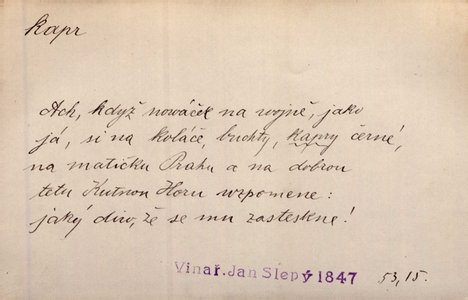 kapr
Ach, když nováček na vojně, jako
já, si na koláče, buchty, kapry černé,
na matičku Prahu a na dobrou
tetu Kutnou Horu vzpomene:
jaký div, že se mu zasteskne!
Vinař. Jan Slepý 1847 53, 15.